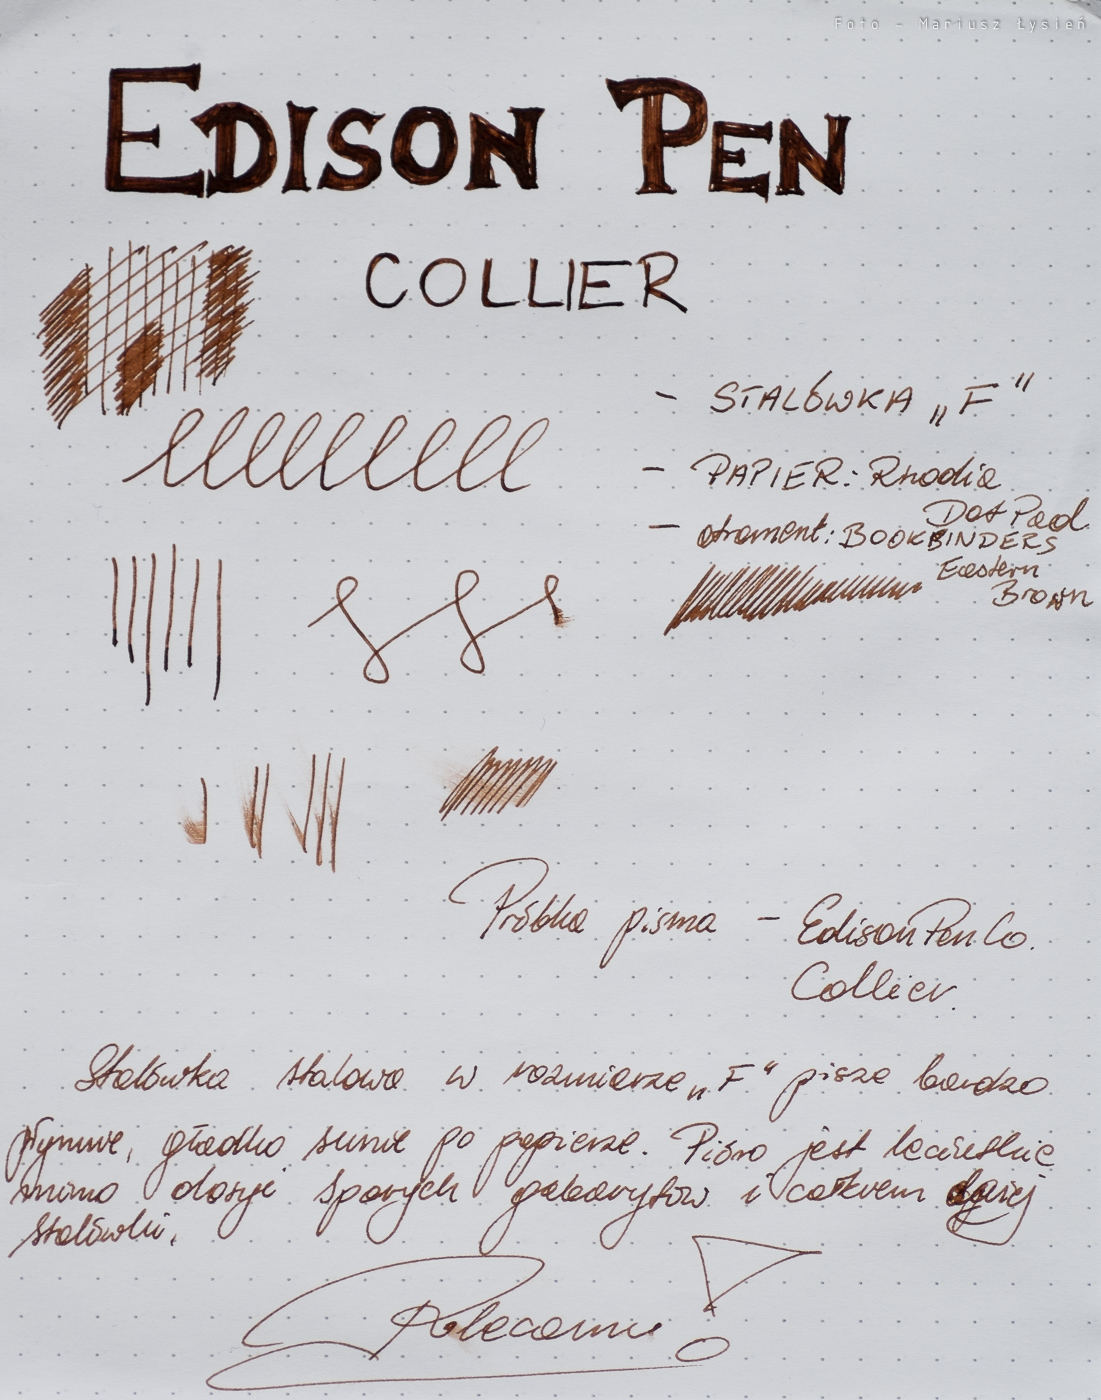 Foto - Mariusz Łysień
EDISON PEN
COLLIER
- STALÓWKA „F"
- PAPIER: Rhodia
Dot Pad
- atrament: BOOKBINDERS
Eastern
Brown
Próbka pisma - Edison Pen Co.
Collier.
Stalówka stalowa w rozmiarze „F" pisze bardzo
płynnie, gładko sunie po papierze. Pióro jest leciutkie
mimo dosyć sporych gabarytów i całkiem dużej
stalówki.
Polecamy!